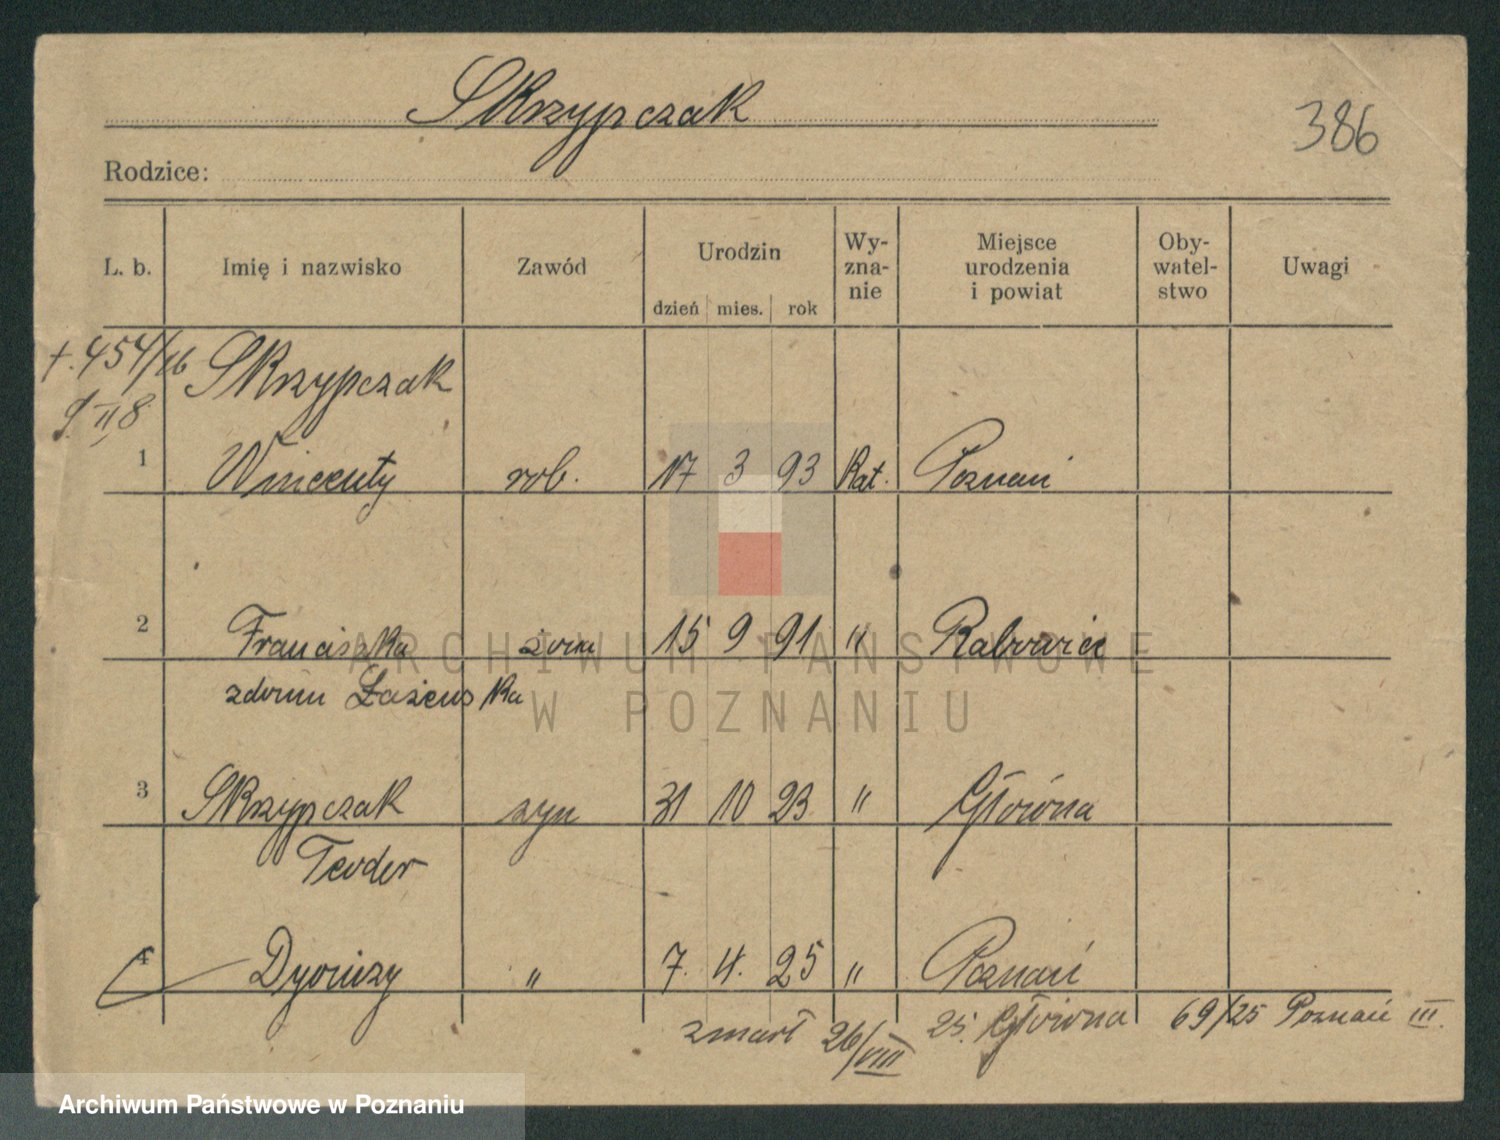 Skrzypczak
386
Rodzice:
L. b. Imię i nazwisko Zawód Urodzin dzień mies. rok Wy-zna-nie Miejsce urodzenia i powiat Oby-watel-stwo Uwagi
+. 454/26 Skrzypczak
9 II 8
1 Wincenty rob. 17 3 93 Kat. Poznań
2 Franciszka żona 15 9 91 "
z domu
3 Skrzypczak syn 31 10 23 " Główna
Teodor
4 Dyonizy " 7. 4. 25 " Poznań
zmarł 26/VIII 25. Główna 69/25 Poznań III.
ARCHIWUM PAŃSTWOWE
W POZNANIU
Archiwum Państwowe w Poznaniu